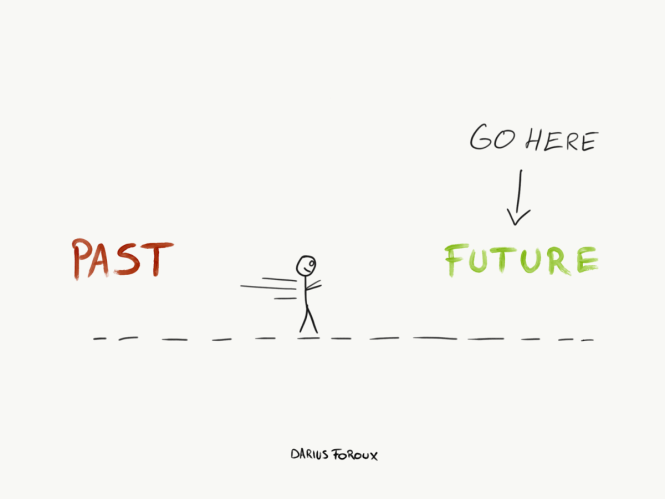 GO HERE
PAST
FUTURE
DARIUS FOROUX